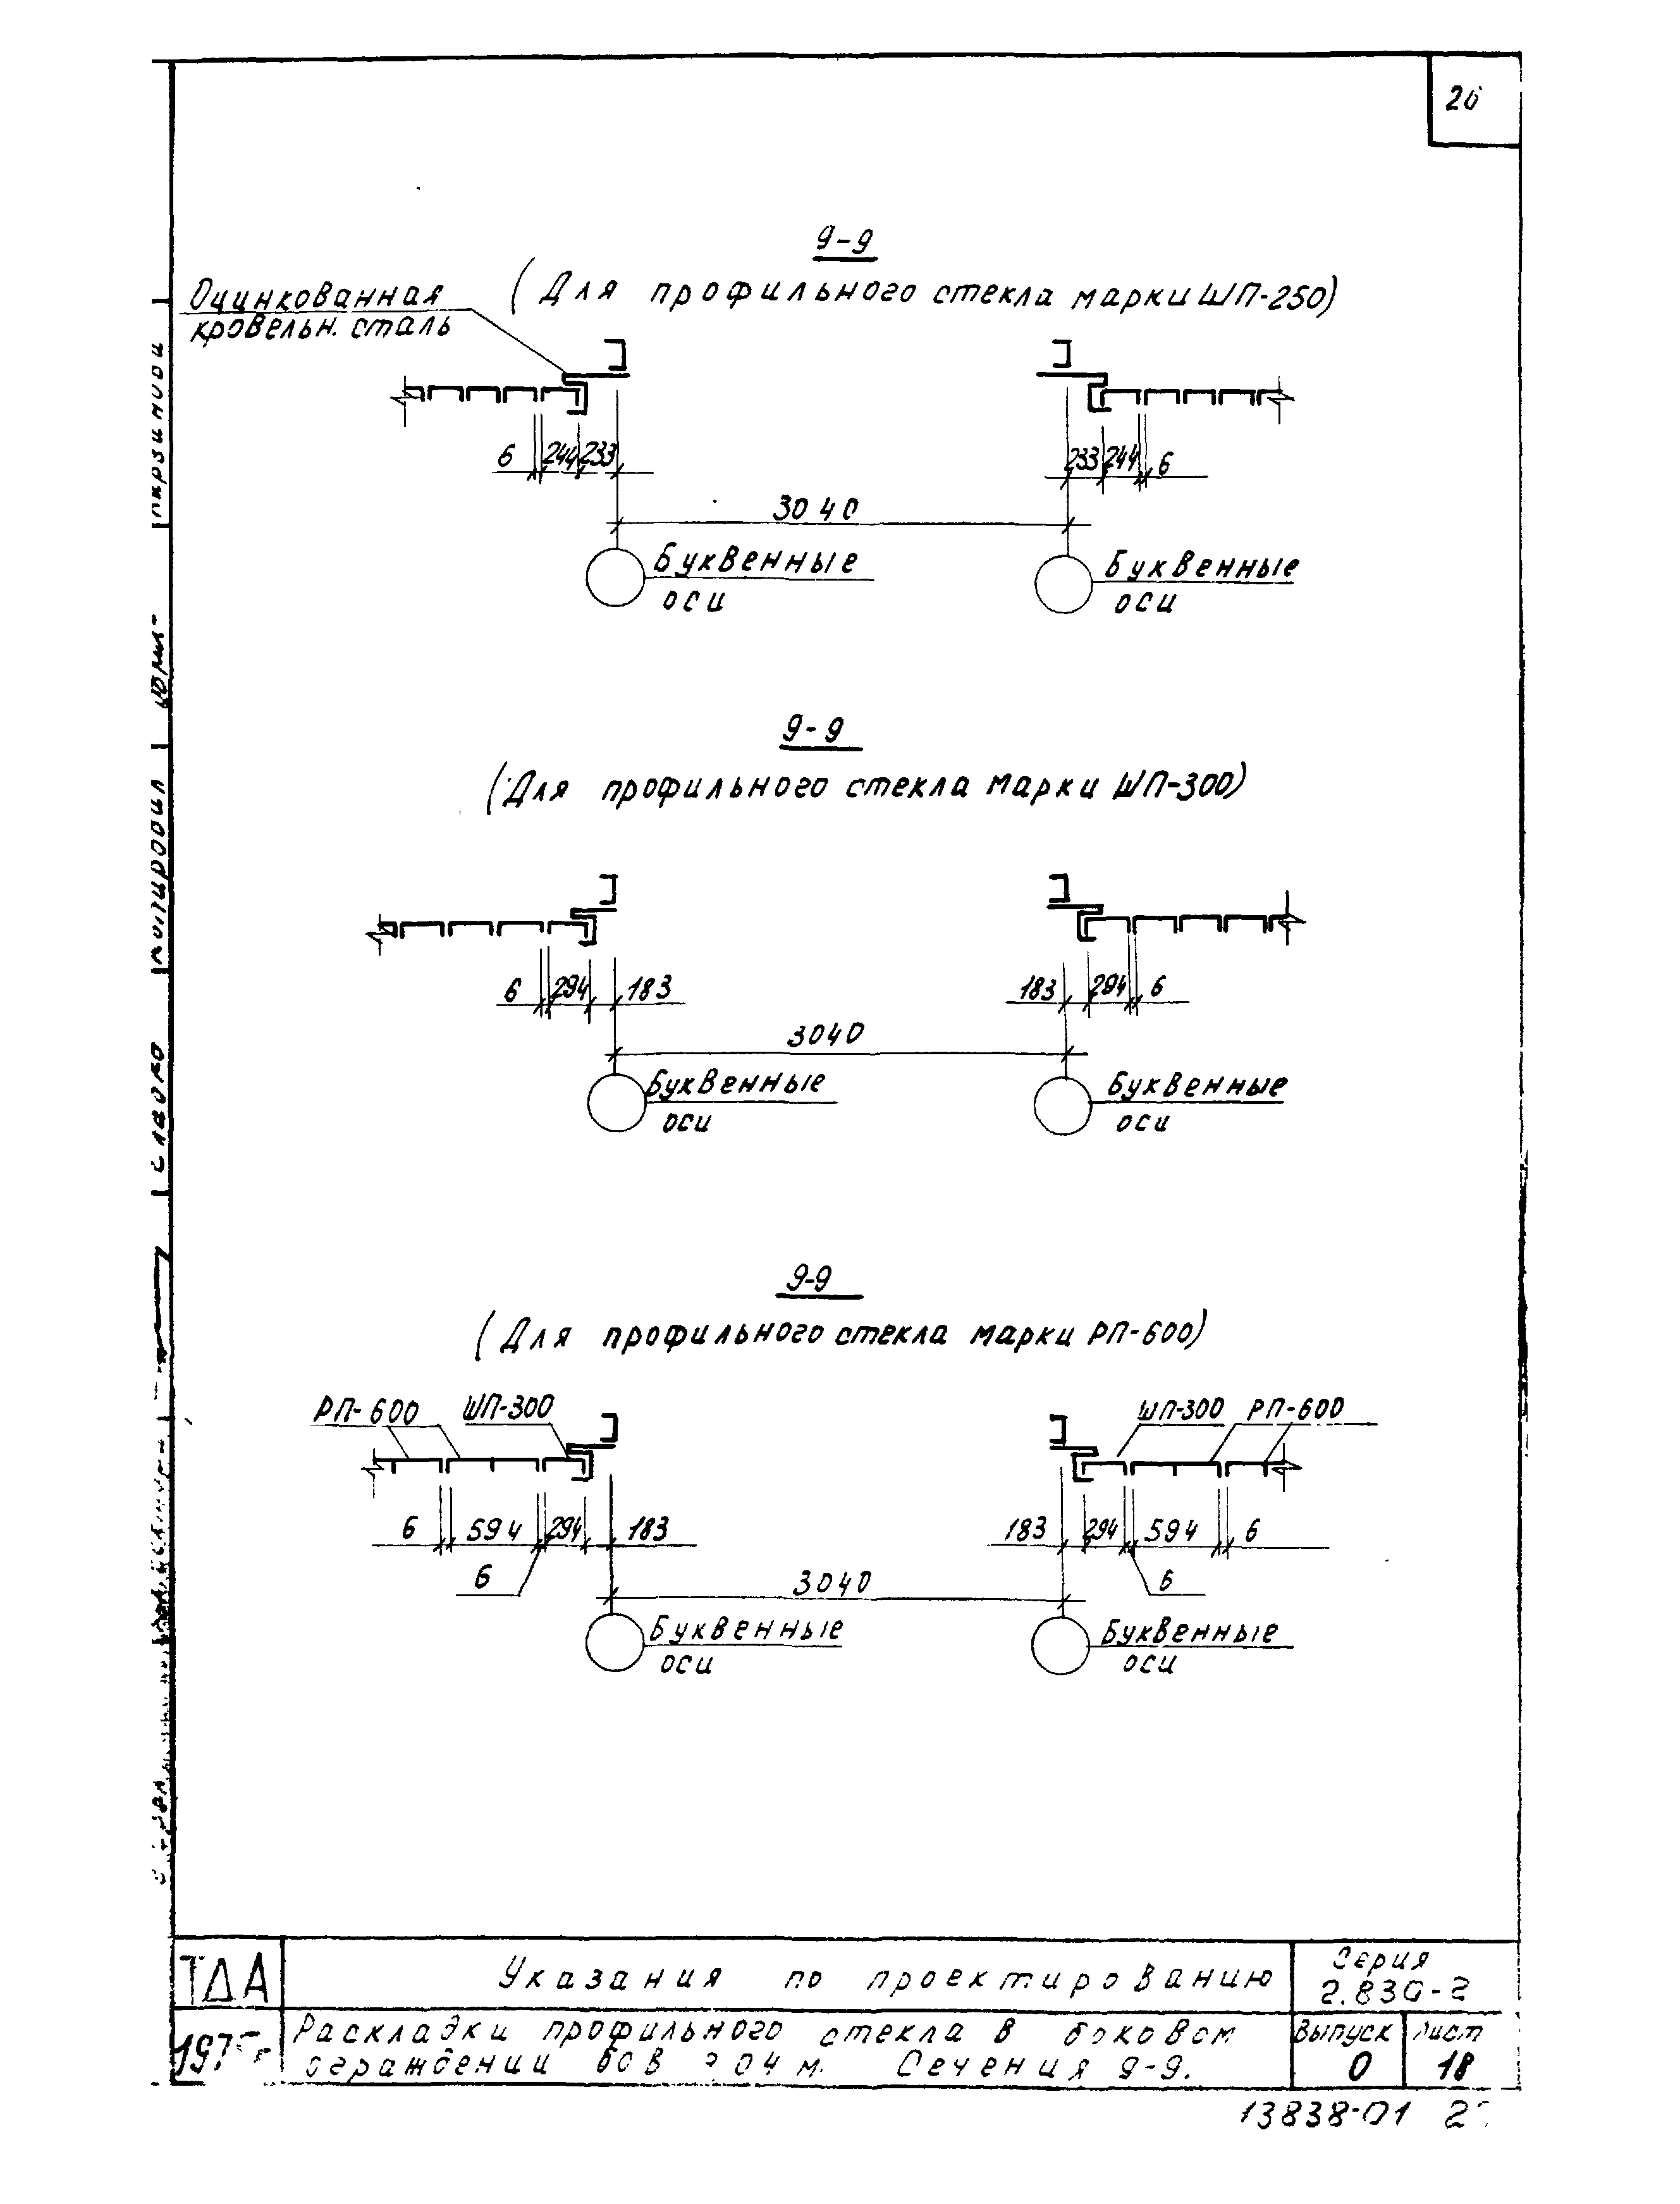 26
9-9
(Для профильного стекла марки ШП-250)
Оцинкованная
кровельн. сталь
6 244 233
233 244 6
3040
Буквенные
оси
Буквенные
оси
9-9
(Для профильного стекла марки ШП-300)
6 294 183
183 294 6
3040
Буквенные
оси
Буквенные
оси
9-9
(Для профильного стекла марки РП-600)
РП-600 ШП-300
ШП-300 РП-600
6 594 294 183
183 294 594 6
6
6
3040
Буквенные
оси
Буквенные
оси
ТДА
Указания по проектированию
Серия
2.830-2
Раскладки профильного стекла в боковом
ограждении 3.04 м. Сечения 9-9.
Выпуск
0
Лист
18
13838-01